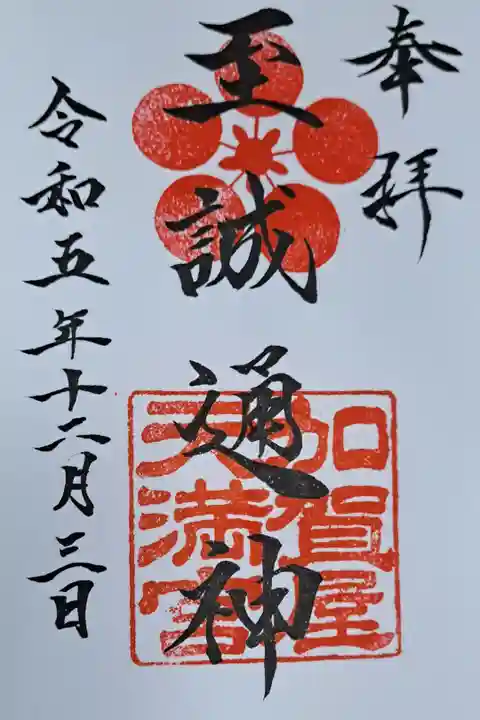 奉拝
至誠通神
加賀屋
天満宮
令和五年十二月三日